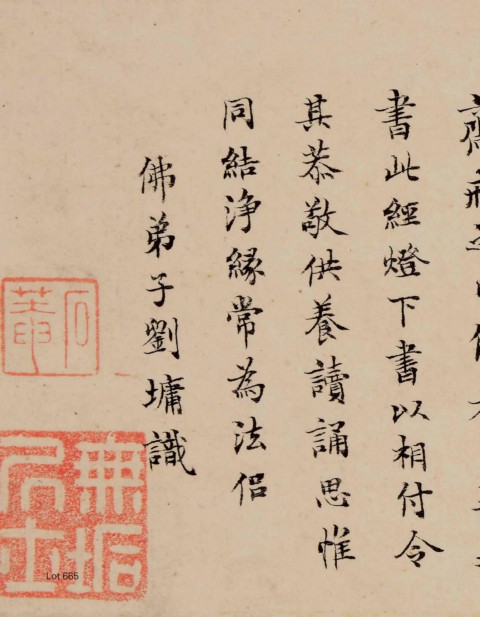 齋戒
書此經燈下書以相付令
其恭敬供養讀誦思惟
同結淨緣常為法侶
佛弟子劉墉識
石菴
無垢
居士
Lot 665